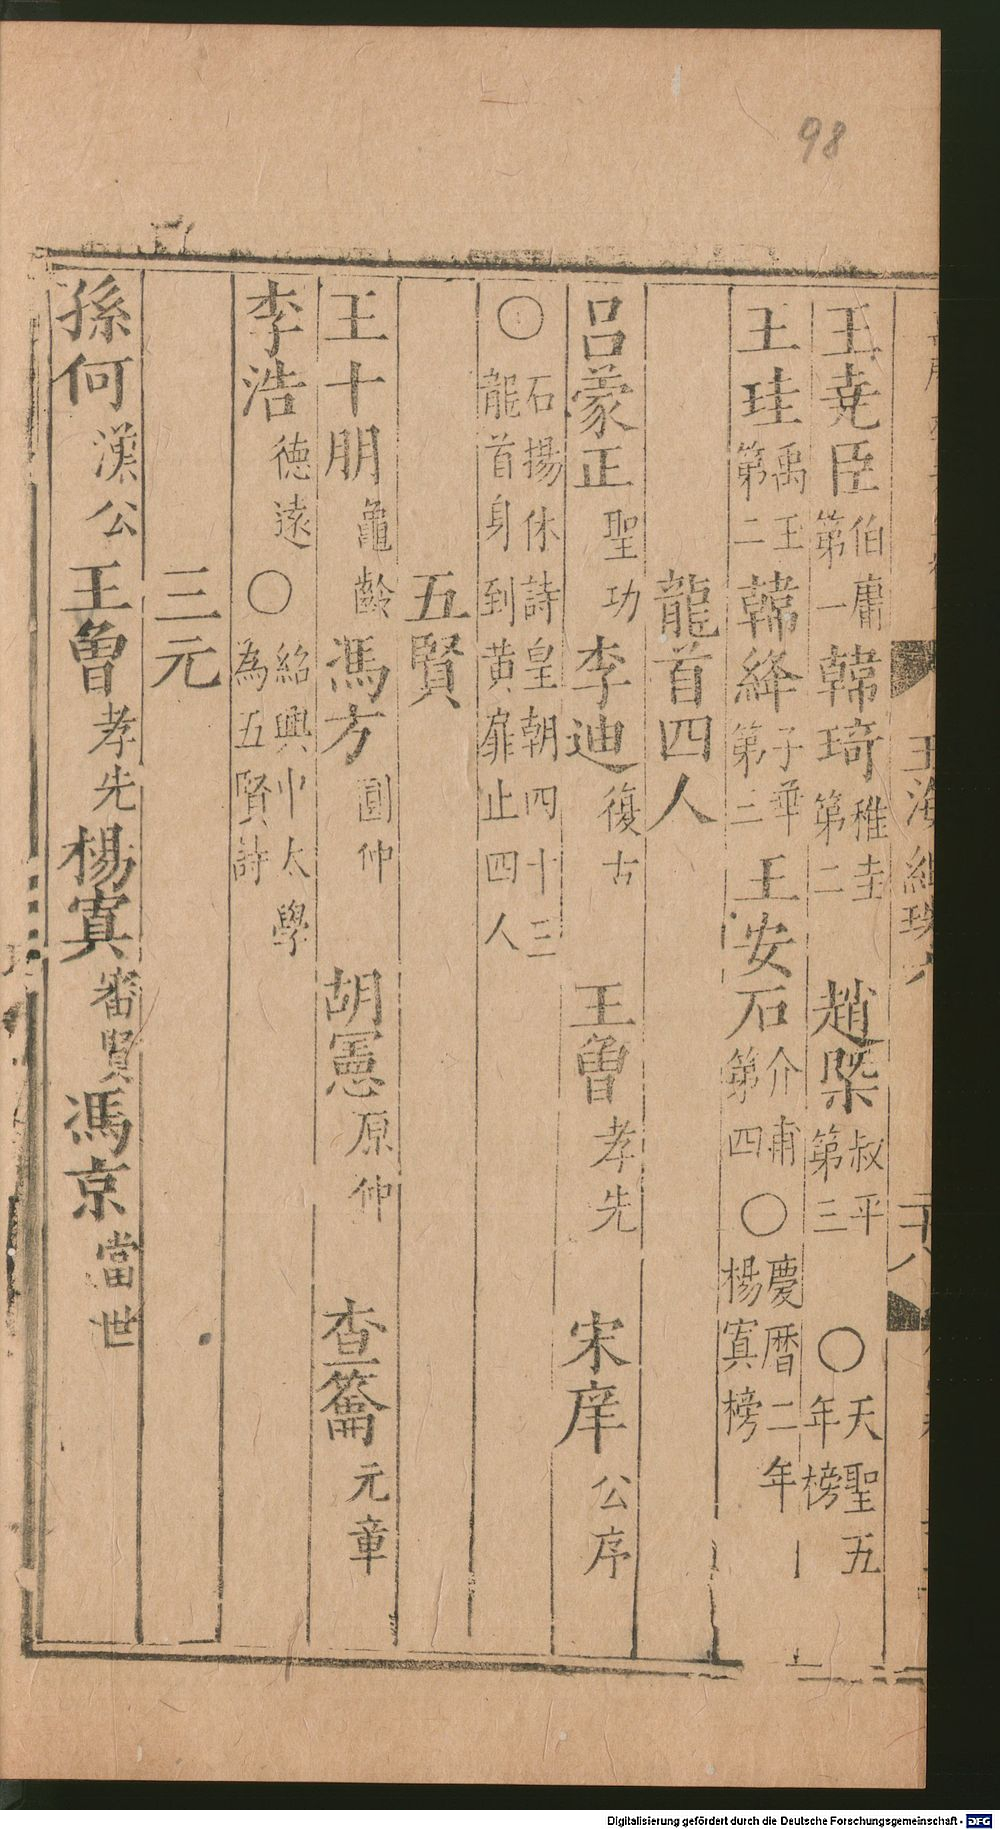 98
王堯臣伯庸第一韓琦稚圭第二 趙槩叔平第三 〇天聖五年榜
王珪禹王第二韓絳子華第三 王安石介甫第四 〇慶暦二年楊寘榜
龍首四人
呂蒙正聖功 李迪復古 王曾孝先 宋庠公序
〇石揚休詩皇朝四十三龍首身到黄扉止四人
五賢
王十朋龜齡馮方圓仲 胡憲原仲 查籥元章
李浩德遠〇紹興中太學為五賢詩
三元
孫何漢公王曾孝先楊寘審賢馮京當世
Digitalisierung gefördert durch die Deutsche Forschungsgemeinschaft - DFG